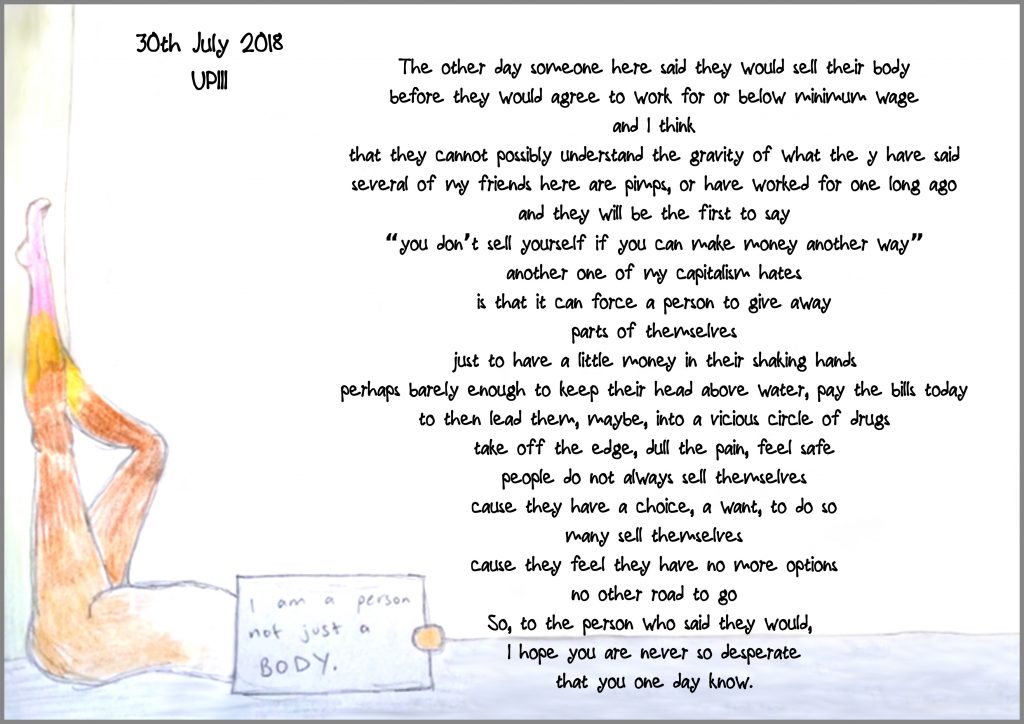 30th July 2018
UPIII
The other day someone here said they would sell their body
before they would agree to work for or below minimum wage
and I think
that they cannot possibly understand the gravity of what the y have said
several of my friends here are pimps, or have worked for one long ago
and they will be the first to say
“you don't sell yourself if you can make money another way”
another one of my capitalism hates
is that it can force a person to give away
parts of themselves
just to have a little money in their shaking hands
perhaps barely enough to keep their head above water, pay the bills today
to then lead them, maybe, into a vicious circle of drugs
take off the edge, dull the pain, feel safe
people do not always sell themselves
cause they have a choice, a want, to do so
many sell themselves
cause they feel they have no more options
no other road to go
So, to the person who said they would,
I hope you are never so desperate
that you one day know.
I am a person
not just a
BODY.